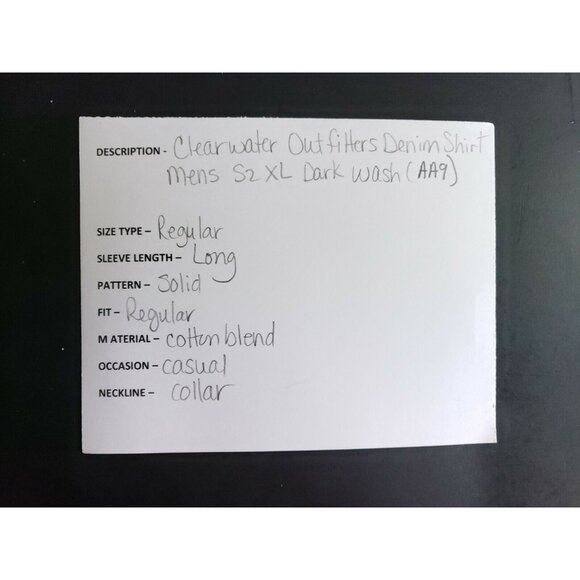 DESCRIPTION - Clearwater Outfitters Denim Shirt
Mens Sz XL Dark Wash (AA9)
SIZE TYPE - Regular
SLEEVE LENGTH - Long
PATTERN - Solid
FIT - Regular
M ATERIAL - cotton blend
OCCASION - casual
NECKLINE - collar